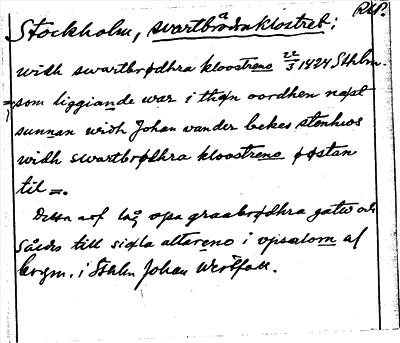 RLP.
Stockholm, svartbrödraklostret:
widh swartbrødhra kloostreno 22/3 1424 Sthlm.
som liggiande war i then oordhen næst
sunnan widh Johan vander bekes stenhws
widh swartbrødhra kloostreno øøstan
til =.
Detta arf låg opa graabrødhra gatw och
såldes till siæla altareno i vpsalom af
borgm. i Sthlm Johan Westfall.